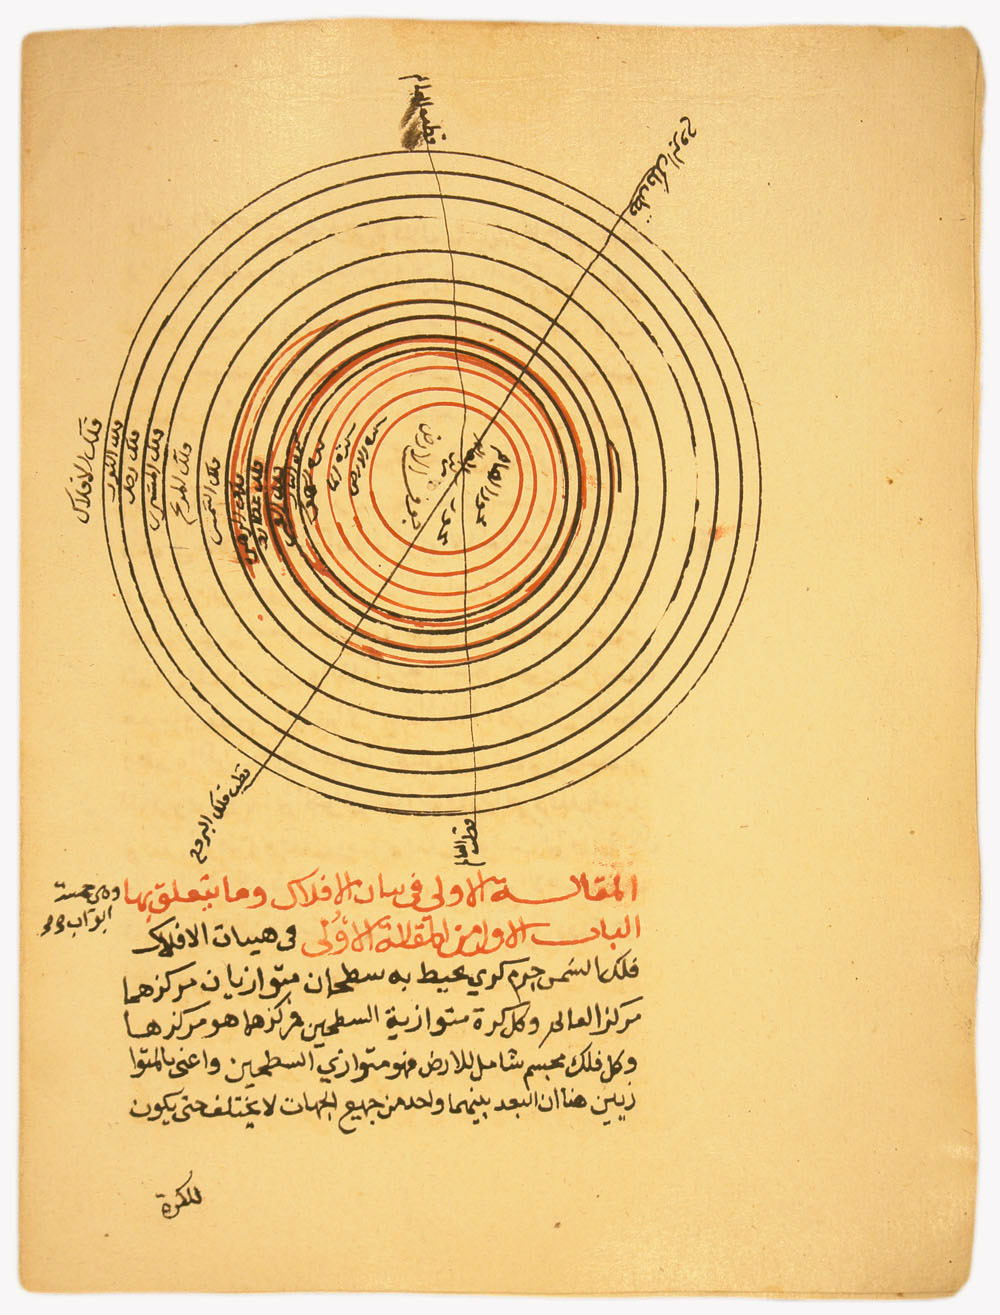 قطب العالم
قطب فلك البروج
فلك الافلاك
فلك زحل
فلك المشتري
فلك المريخ
فلك الشمس
فلك عطارد
كرة الارض
محور العالم
قطب فلك البروج
قطب العالم
المقالــــة الاولى في بيان الافلاك وما يتعلق بها وهي خمسة
ابواب
البابــ الاول من المقالة الاولى في هيئات الافلاك
فلك الشمس جرم كري يحيط به سطحان متوازيان مركزهما
مركز العالم وكل كرة متوازية السطحين فمركزهما هو مركزها
وكل فلك مجسم شامل للارض فهو متوازي السطحين واعني بالمتوا
زيين هنا ان البعد بينهما واحد من جميع الجهات لا يختلف حتى يكون
للكرة